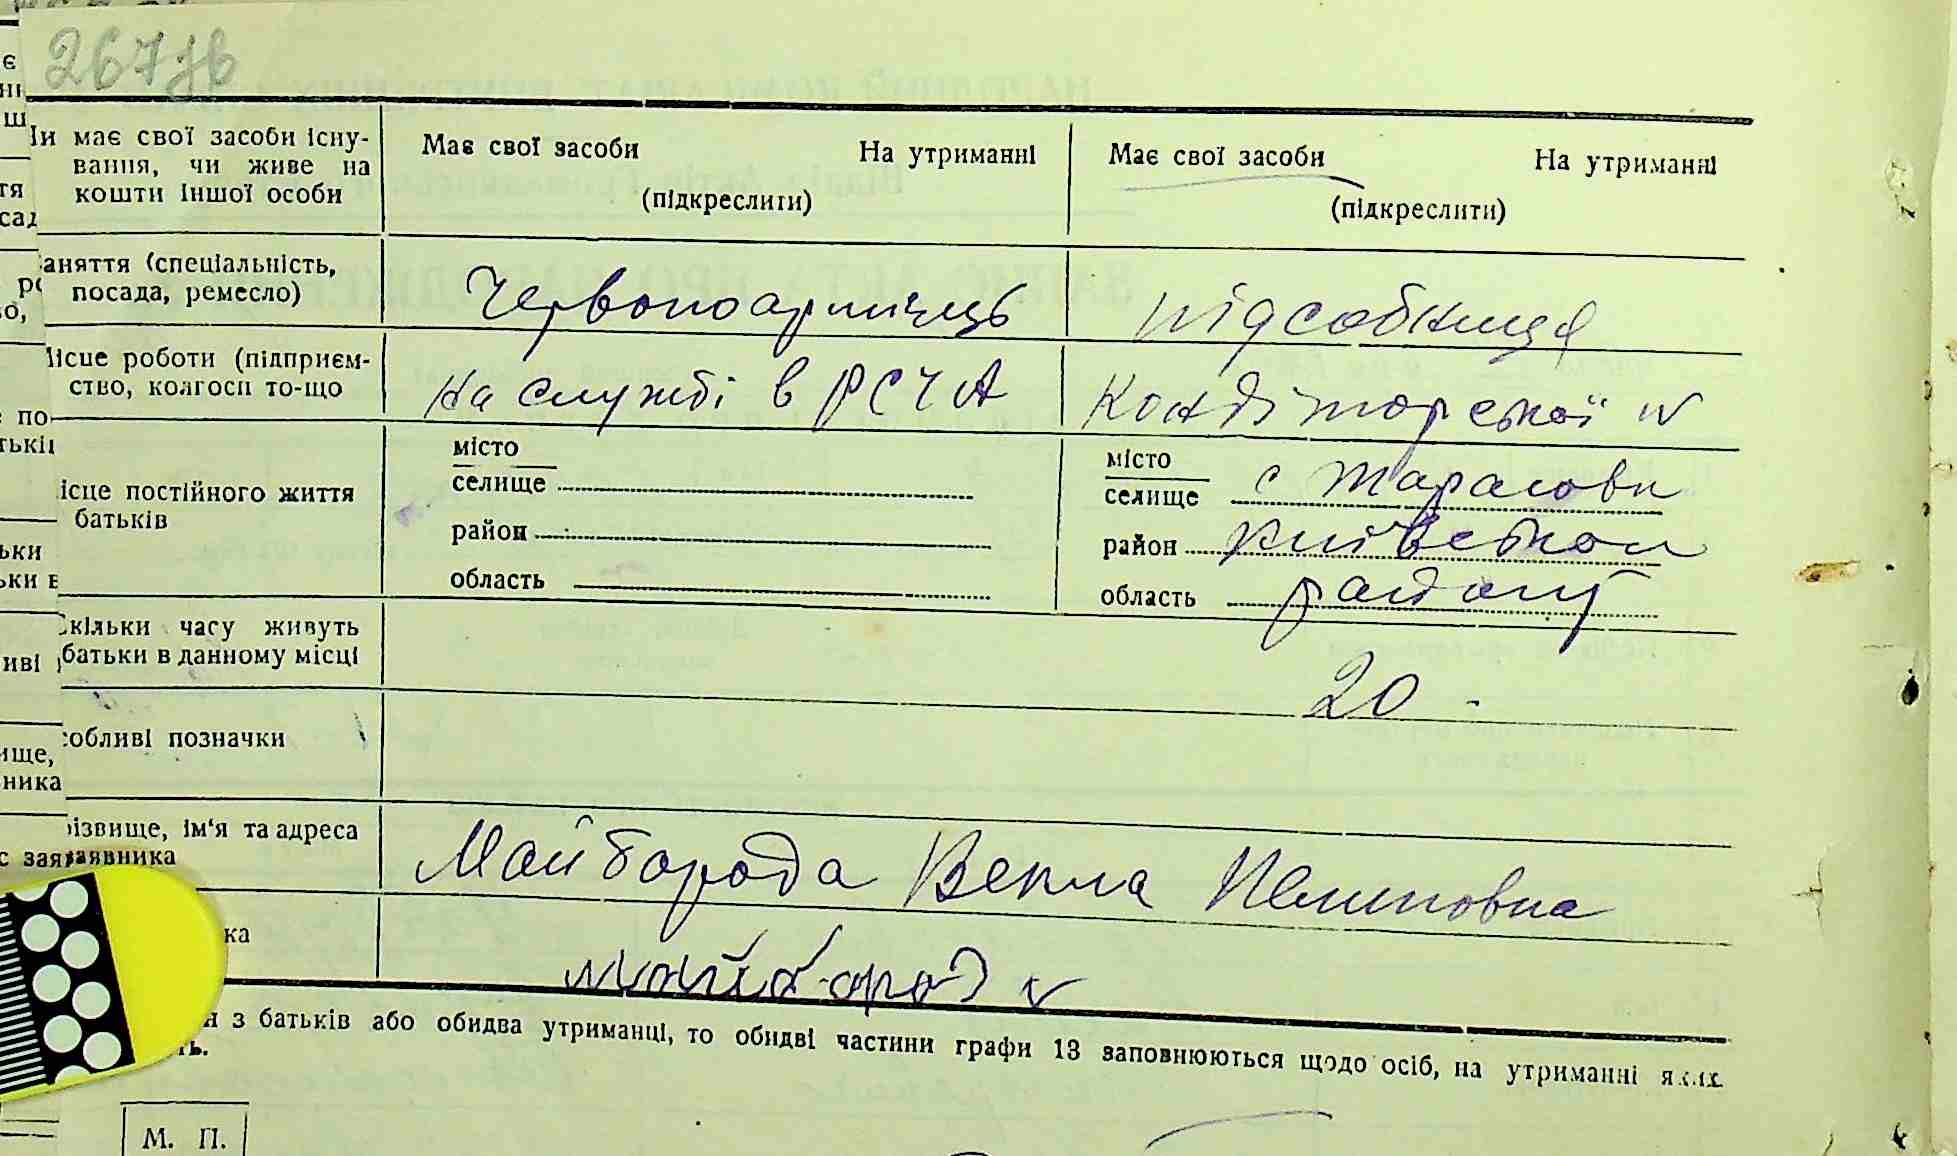 267
Чи має свої засоби існу-
вання, чи живе на
кошти іншої особи
Має свої засоби На утриманні
(підкреслити)
Має свої засоби На утриманні
(підкреслити)
аняття (спеціальність,
посада, ремесло)
Червоноармієць
підсобниця
Місце роботи (підприєм-
ство, колгосп то-що
на службі в РСЧА
Кондіторської
ісце постійного життя
батьків
місто
селище
район
область
місто
селище с Тарасовк
район Київської
область
Скільки часу живуть
батьки в данному місці
20
собливі позначки
різвище, ім'я та адреса
заявника
Майборода Векла
ка
н з батьків або обидва утриманці, то обидві частини графи 13 заповнюються щодо осіб, на утриманні яких
ть.
М. П.